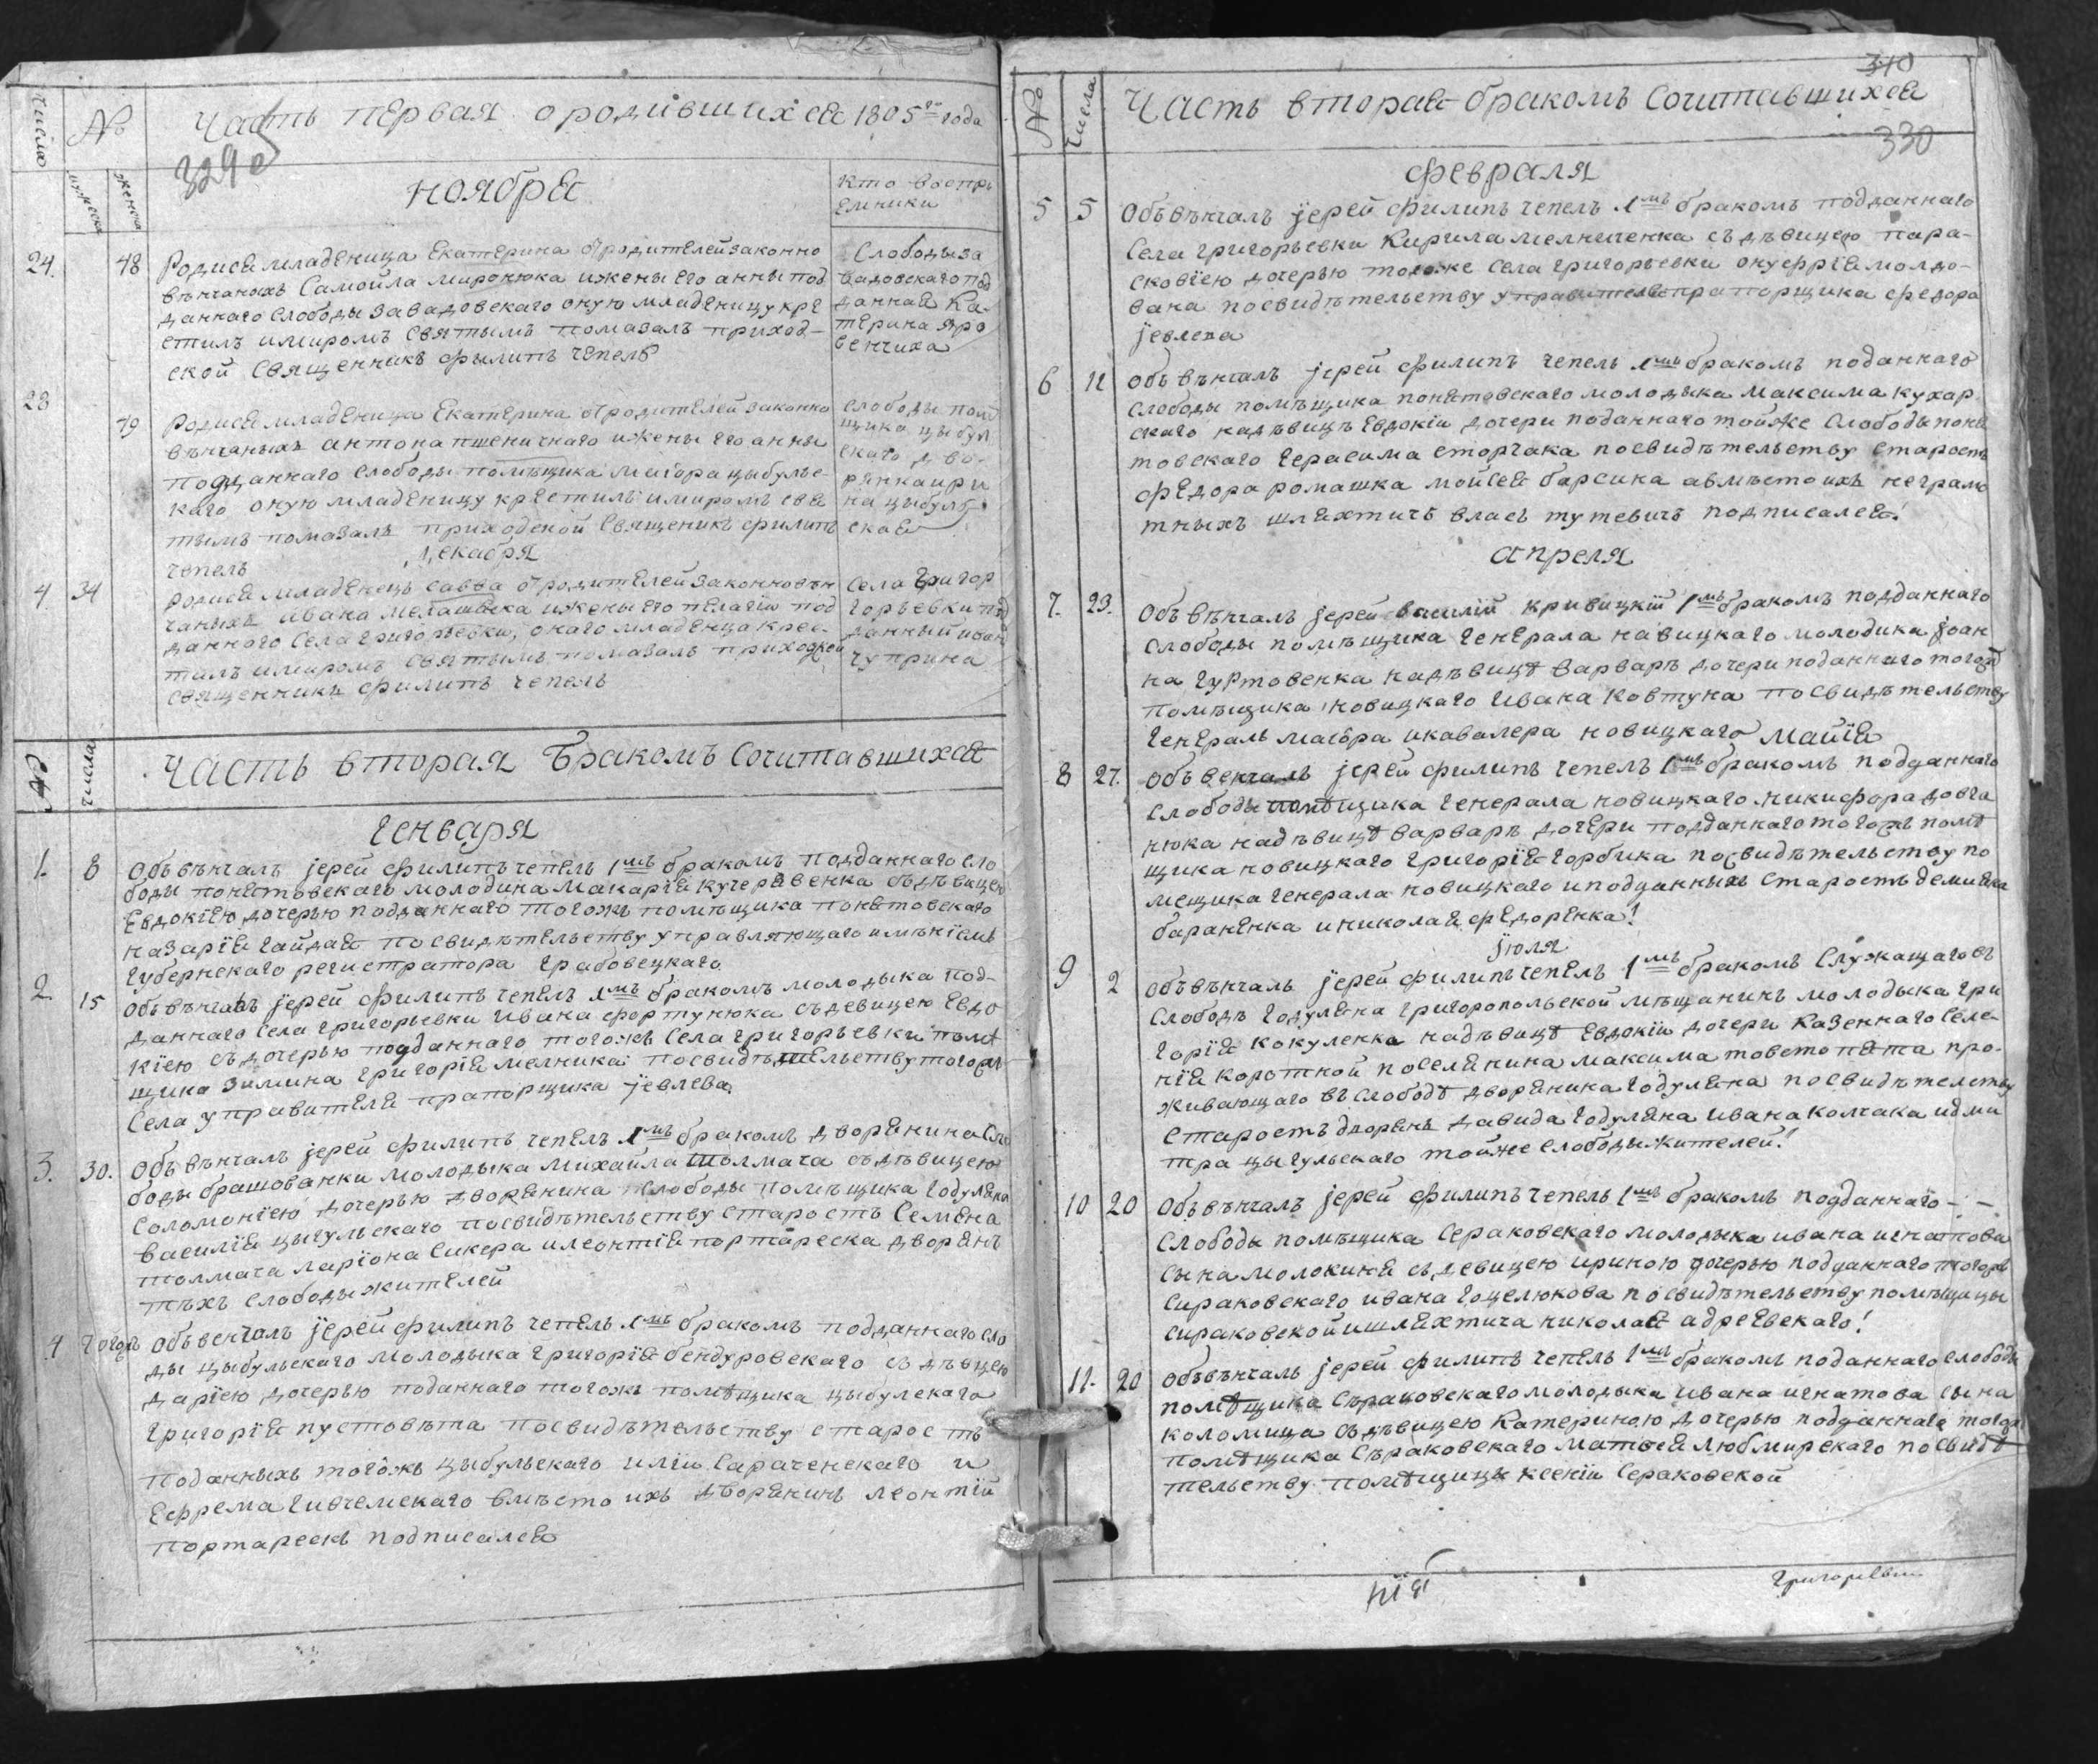 Числа
№
Часть первая о родившихся 1805го года
329 о
мужеска
женска
ноября
кто воспри
емники
24.
48
Родися младеница Екатерина отродителейзаконно
венчаныхъ Самойла миронюка ижены его анны под
даннаго слободы завадовскаго оную младеницу кре
стилъ имиромъ святымъ помазалъ приход-
ской священникъ филипъ чепель
Слободы за
вадовскаго под
данная Ка
терина яро
венчиха
28
49
Родися младеница Екатерина отродителей законно
вѣнчаныхъ антона пшеничнаго ижены его анны
подданнаго слободы помѣщика маіора цыбульс-
каго оную младеницу крестилъ имиромъ свя
тымъ помазалъ приходской священикъ филипъ
чепель
слободы помѣ
щика цыбул
скаго дво-
рянка ири
на цыбуль
ская
декабря
4
34
родися младенецъ савва отродителей законновѣн
чаныхъ ивана ижены его пелагіи под
даннаго села григорьевки, онаго младенца крес-
тилъ имиромъ святымъ помазалъ приходской
священникъ филипъ чепель
села григор
горьевки под
данный иван
чуприна
№
числа
Часть вторая Бракомъ сочитавшихся
Генваря
1.
8
Объвѣнчалъ іерей филипъ чепель 1мъ бракомъ подданнаго сло
боды понятовскаго молодика макарія кучерявенка съдѣвицею
Евдокіею дочерью подданнаго тогожъ помѣщика понятовскаго
назарія гайдая посвидѣтельству управляющаго имѣніемъ
губернскаго регистратора грабовецкаго
2.
15
Объвѣнчалъ іерей филипъ чепель 1мъ бракомъ молодыка под-
даннаго села григорьевки ивана фортунюка съдевицею Евдо
кіею съдочерью подданнаго тогожъ села григорьевки помѣ
щика зимина григорія мелника посвидѣтельству тогожъ
села управителя прапорщика іевлева
3.
30.
Объвѣнчалъ іерей филипъ чепель 1мъ бракомъ дворянина сло
боды брашованки молодыка михайла толмача съдѣвицею
соломоніею дочерью дворянина слободы помѣщика годуляна
василія цыгульскаго посвидѣтельству старостъ семена
толмача ларіона сикера илеонтія портареска дворянъ
тѣхъ слободы жителей
4
тогожъ
Объвенчалъ іерей филипъ чепель 1мъ бракомъ подданнаго сло
ды цыбульскаго молодыка григорія бендуровскаго съ дѣвцею
даріею дочерью поданнаго тогожъ помѣщика цыбулскаго
григорія пустовѣта посвидѣтельству старостъ
поданныхъ тогожъ цыбульскаго иліи сараченскаго и
Ефрема вмѣсто ихъ дворянинъ леонтій
портарескъ подписался
310
330
№
Числа
Часть вторая бракомъ сочитавшихся
февраля
5
5
Объвѣнчалъ іерей филипъ чепель 1мъ бракомъ подданнаго
села григорьевки кирила мелниченка съдѣвицею пара-
сковіею дочерью тогоже села григорьевки онуфрія молдо-
вана посвидѣтельству управителя прапорщика федора
іевлева
6
12
объвѣнчалъ іерей филипъ чепель 1мъ бракомъ поданнаго
слободы помѣщика понятовскаго молодыка максима кухар
скаго надѣвицѣ Евдокіи дочери поданнаго тойже слободы поня
товскаго герасима сторчака посвидѣтельству старостъ
федора ромашка мойсея барсина авмѣсто ихъ неграмо
тныхъ шляхтичъ власъ тутевичъ подписался!
апреля
7.
23.
Объвѣнчалъ іерей василій кривицкій 1мъ бракомъ подданнаго
слободы помѣщика генерала навицкаго молодика іоан
на гуртовенка надѣвицѣ варварѣ дочери поданнаго тогожъ
помѣщика новицкаго ивана ковтуна посвидѣтельству
генералъ маіора икавалера новицкаго маія
8
27.
Объвенчалъ іерей филипъ чепель 1мъ бракомъ подданнаго
слободы помѣщика генерала новицкаго никифора довга
нюка надѣвицѣ варварѣ дочери подданнаго тогожъ помѣ
щика новицкаго григорія горбика посвидѣтельству по
мещика генерала новицкаго иподданныхъ старостъ демияна
бараненка иниколая федоренка!
іюля
9
2
объвѣнчалъ іерей филипъ чепель 1мъ бракомъ служащаго въ
слободѣ годуляна григоропольской мѣщанинъ молодыка гри
горія кокуленка надѣвицѣ Евдокіи дочери казеннаго селе-
нія коротной поселянина максима товстопята про-
живающаго въ слободѣ дворяника годуляна посвидѣтелству
старостъ дворянъ давида годуляна ивана колчака идми
тра цыгульскаго тойже слободы жителей!
10
20
Объвѣнчалъ іерей филипъ чепель 1мъ бракомъ подданнаго - -
слободы помѣщика сераковскаго молодыка ивана игнатова
сына молокина съ девицею ириною дочерью подданнаго тогожъ
сираковскаго ивана гоцелюкова посвидѣтельству помѣщицы
сираковской ишляхтича николая адреевскаго!
11.
20
объвѣнчалъ іерей филипъ чепель 1мъ бракомъ поданнаго слободы
помѣщика съраковскаго молодыка ивана игнатова сына
коломица съдѣвицею катериною дочерью подданнаго тогожъ
помѣщика съраковскаго матвея любмирскаго посвидѣ
тельству помѣщицы ксеніи сераковской